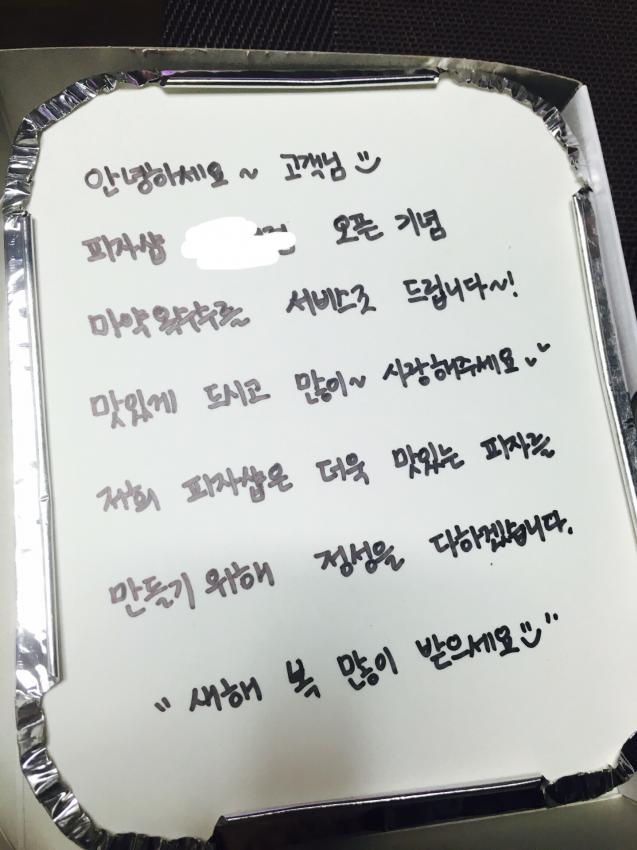 안녕하세요~ 고객님
피자샵 점 오픈 기념
마약옥수수를 서비스로 드립니다~!
맛있게 드시고 많이~ 사랑해주세요
저희 피자샵은 더욱 맛있는 피자를
만들기 위해 정성을 다하겠습니다.
"새해 복 많이 받으세요"